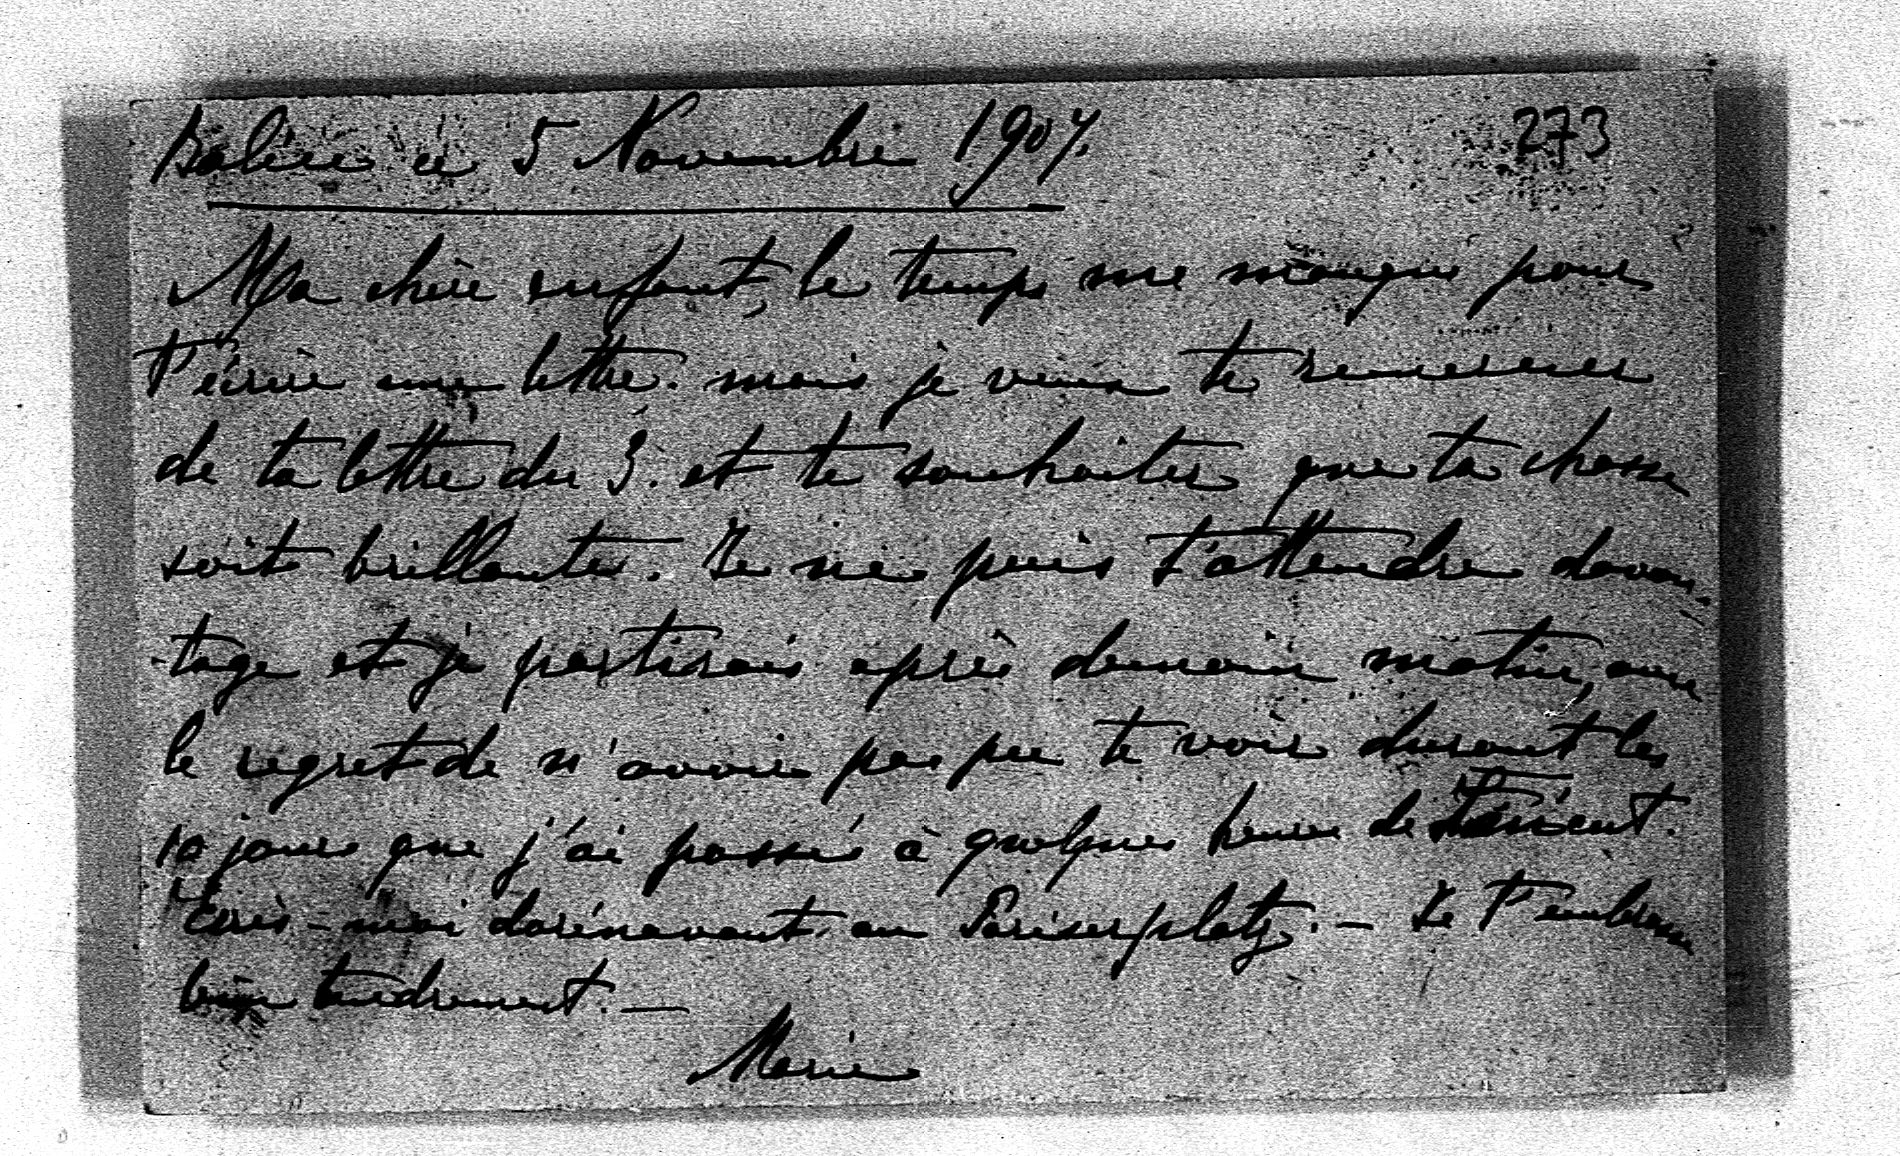 ce 5 Novembre 1907. 273
Ma chère enfant, le temps me manque pour
t'écrire une lettre. mais je veux te remercier
de ta lettre du 3. et te souhaiter que ta chasse
soit brillante. Je ne puis t'attendre davan-
-tage et je partirais après demain matin, avec
le regret de n'avoir pas pu te voir durant les
10 jours que j'ai passés à quelques heures de
Écris-moi dorénavant au Pariserplatz. — Je t'embrasse
bien tendrement. —
Marie